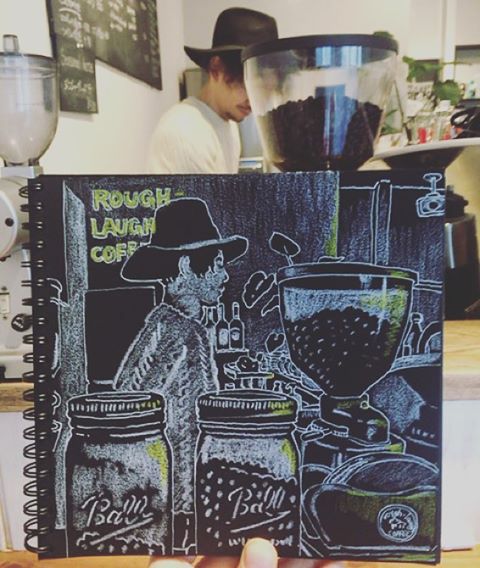 ROUGH-
LAUGH
COFF
Ball
Ball
COFFEE